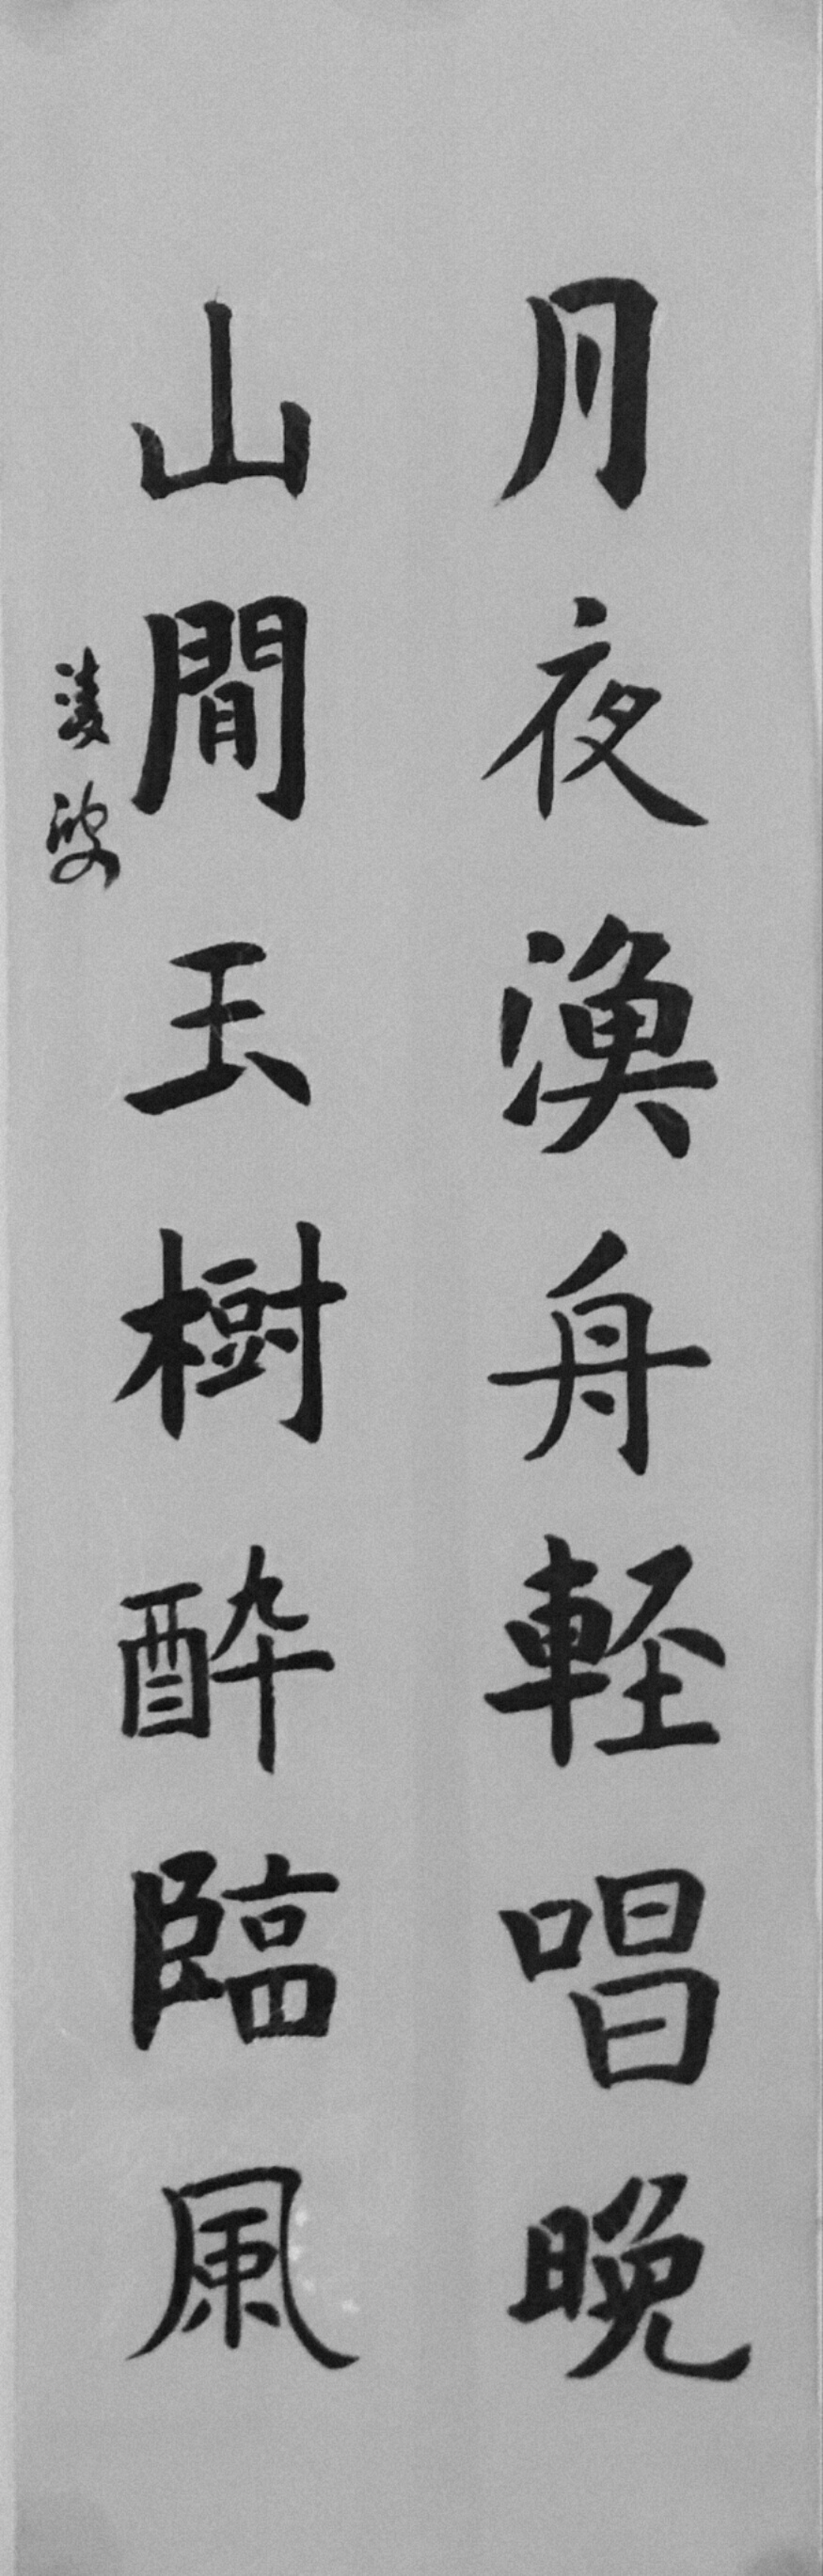 月夜漁舟軽唱晚
山間玉樹酔臨風
凌波